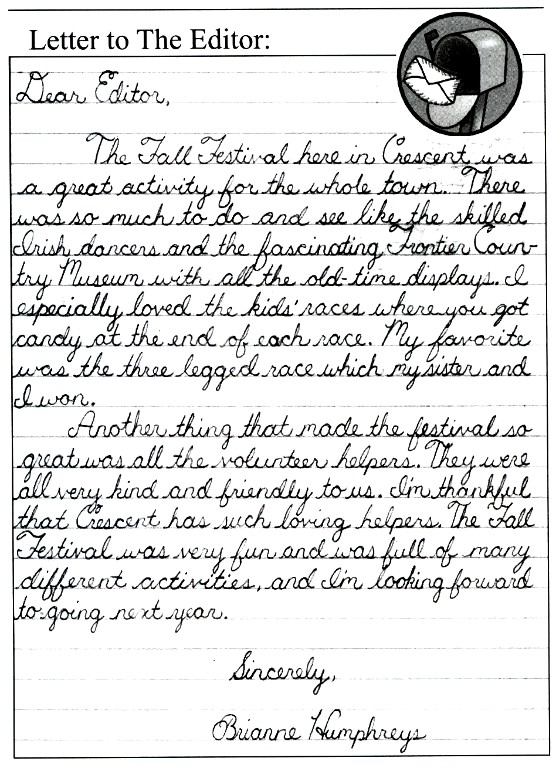 Letter to The Editor:
Dear Editor,
The Fall Festival here in Crescent was
a great activity for the whole town. There
was so much to do and see like the skilled
Irish dancers and the fascinating Frontier Coun-
try Museum with all the old-time displays. I
especially loved the kids' races where you got
candy at the end of each race. My favorite
was the three legged race which my sister and
I won.
Another thing that made the festival so
great was all the volunteer helpers. They were
all very kind and friendly to us. I'm thankful
that Crescent has such loving helpers. The Fall
Festival was very fun and was full of many
different activities, and I'm looking forward
to going next year.
Sincerely,
Brianne Humphreys